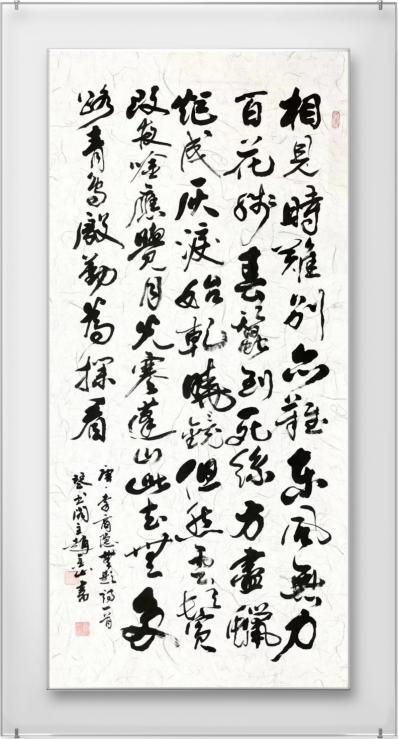 相見時難別亦難東風無力
百花殘春蠶到死絲方盡蠟
炬成灰淚始乾曉鏡但愁雲鬢
改夜吟應覺月光寒蓬山此去無多
路青鳥殷勤為探看
唐·李商隱無題詩一首
書閣主趙書